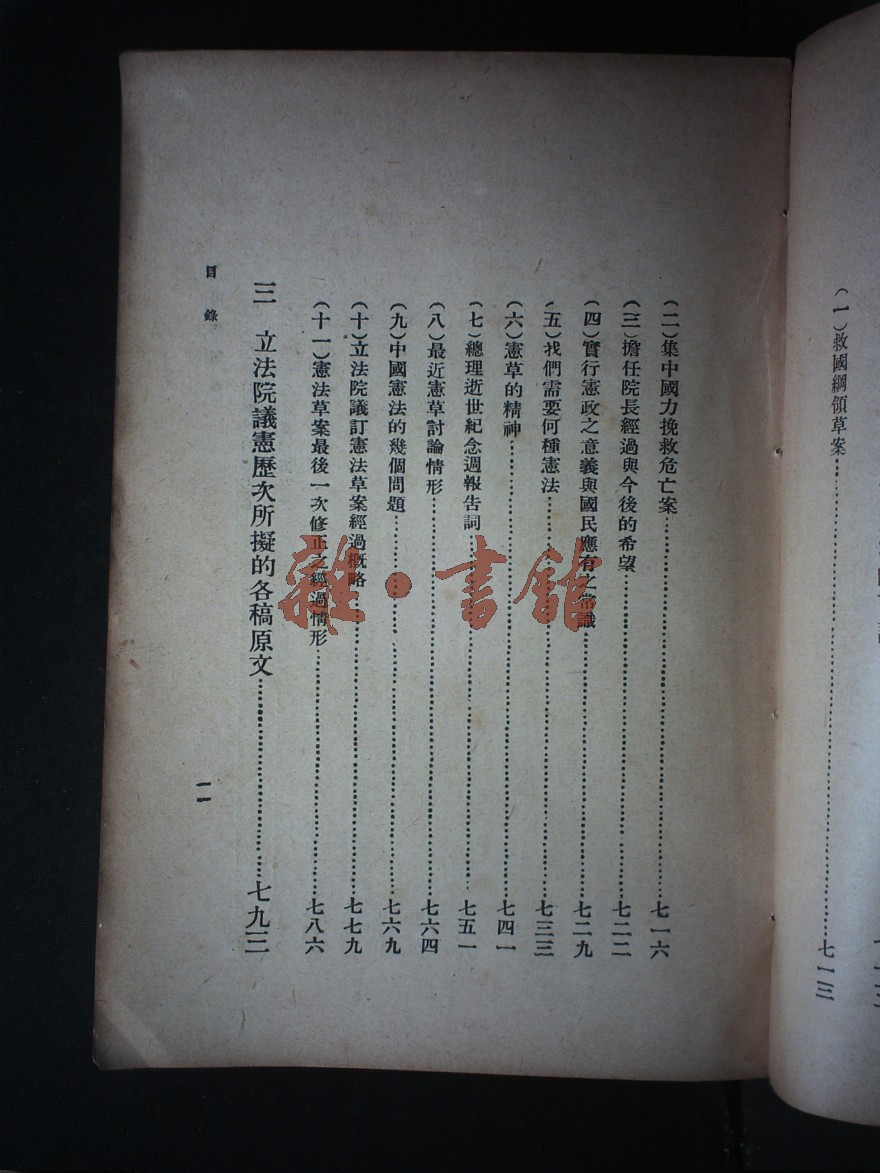 (一)救國綱領草案……七一三
(二)集中國力挽救危亡案……七一六
(三)擔任院長經過與今後的希望……七二二
(四)實行憲政之意義與國民應有之常識……七二九
(五)我們需要何種憲法……七三三
(六)憲草的精神……七四一
(七)總理逝世紀念週報告詞……七五一
(八)最近憲草討論情形……七六四
(九)中國憲法的幾個問題……七六九
(十)立法院議訂憲法草案經過概略……七七九
(十一)憲法草案最後一次修正之經過情形……七八六
三 立法院議憲歷次所擬的各稿原文……七九三
目錄
一一
雜·書館